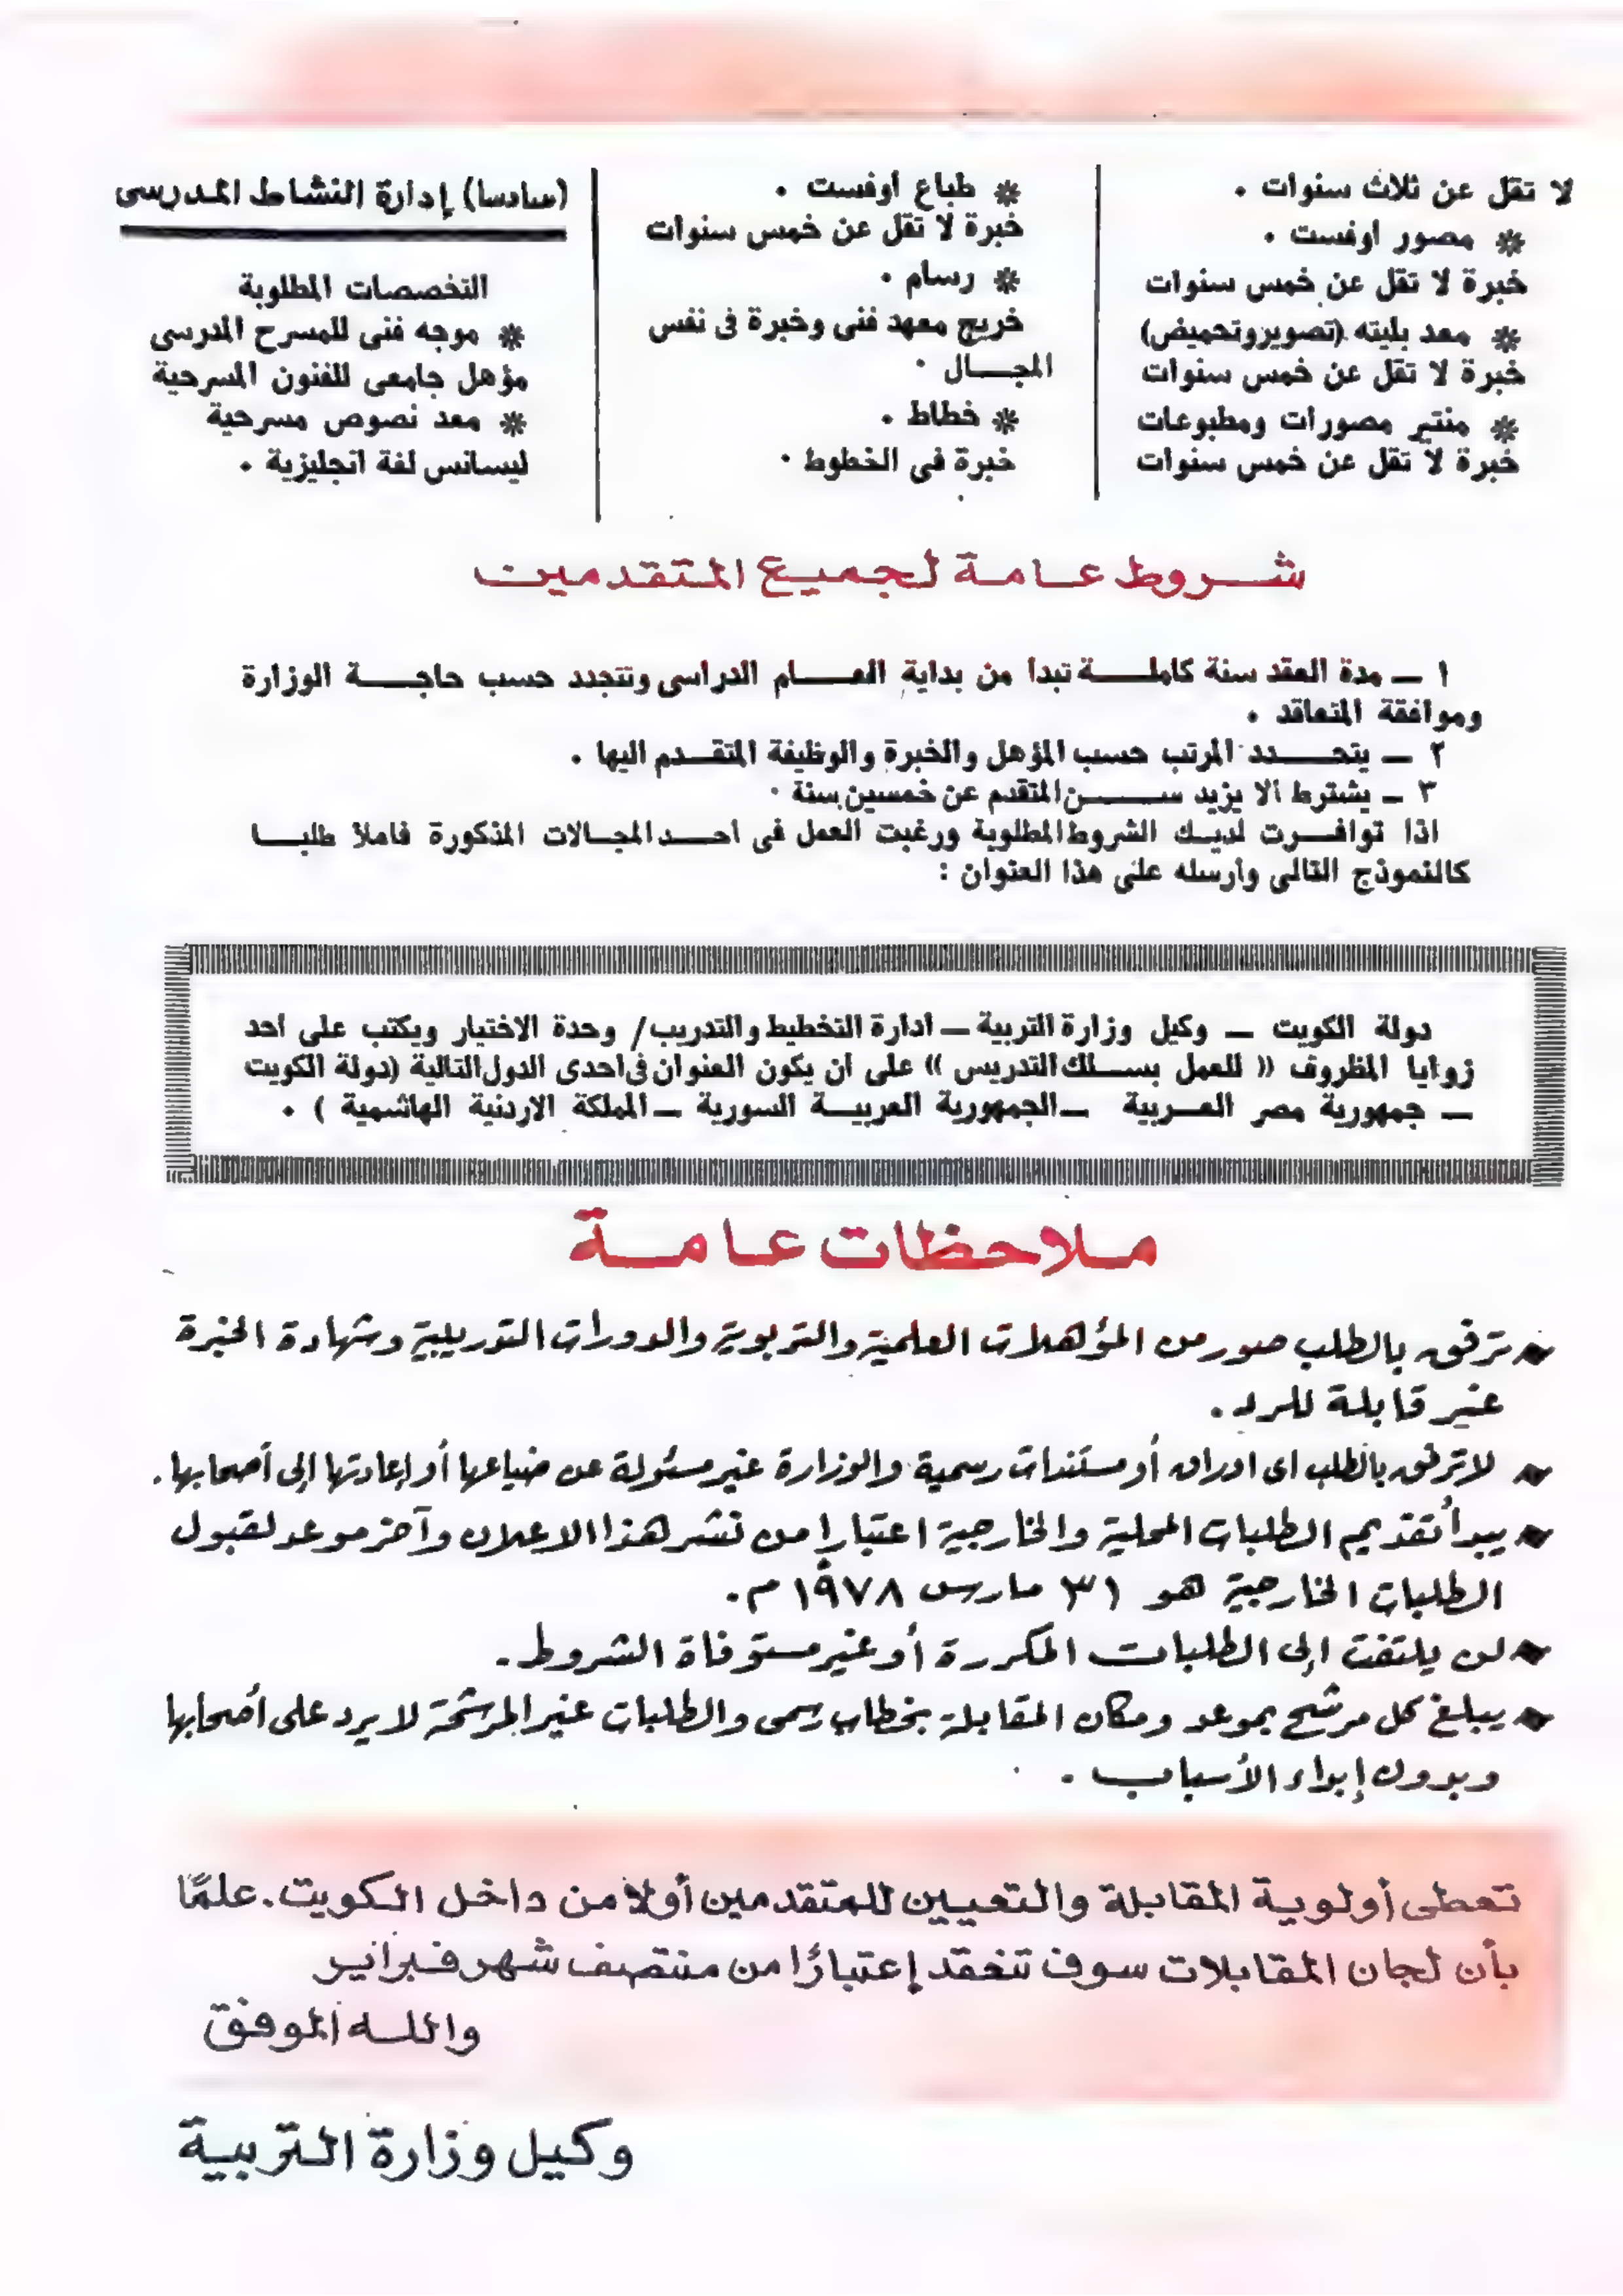 لا تقل عن ثلاث سنوات .
* مصور أوفست .
خبرة لا تقل عن خمس سنوات
* معد بليته (تصوير وتحميض)
خبرة لا تقل عن خمس سنوات
* منتير مصورات ومطبوعات
خبرة لا تقل عن خمس سنوات
* طباع أوفست .
خبرة لا تقل عن خمس سنوات
* رسام .
خريج معهد فنى وخبرة فى نفس
المجال .
* خطاط .
خبرة فى الخطوط .
(سادسا) إدارة النشاط المدرسى
التخصصات المطلوبة
* موجه فنى للمسرح المدرسى
مؤهل جامعى للفنون المسرحية
* معد نصوص مسرحية
ليسانس لغة انجليزية .
شروط عامة لجميع المتقدمين
١ — مدة العقد سنة كاملة تبدأ من بداية العام الدراسى وتتجدد حسب حاجة الوزارة
وموافقة المتعاقد .
٢ — يتحدد المرتب حسب المؤهل والخبرة والوظيفة المتقدم اليها .
٣ — يشترط ألا يزيد سن المتقدم عن خمسين سنة .
اذا توافرت لديك الشروط المطلوبة ورغبت العمل فى احد المجالات المذكورة فاملأ طلبا
كالنموذج التالى وأرسله على هذا العنوان :
دولة الكويت — وكيل وزارة التربية — ادارة التخطيط والتدريب/ وحدة الاختيار ويكتب على أحد
زوايا المظروف « للعمل بسلك التدريس » على ان يكون العنوان فى احدى الدول التالية (دولة الكويت
— جمهورية مصر العربية — الجمهورية العربية السورية — المملكة الاردنية الهاشمية ) .
ملاحظات عامة
ترفق بالطلب صور من المؤهلات العلمية والتربوية والدورات التدريبية وشهادة الخبرة
غير قابلة للرد .
لا ترفق بالطلب اى اوراق أو مستندات رسمية والوزارة غير مسئولة عن ضياعها أو إعادتها إلى أصحابها .
يبدأ تقديم الطلبات المحلية والخارجية اعتبارا من نشر هذا الاعلان وآخر موعد لقبول
الطلبات الخارجية هو ٣١ مارس ١٩٧٨ م .
لن يلتفت إلى الطلبات المكررة أو غير مستوفاة الشروط .
يبلغ كل مرشح بموعد ومكان المقابلة بخطاب رسمى والطلبات غير المرشحة لا يرد على أصحابها
وبدون إبداء الأسباب .
تعطى أولوية المقابلة والتعيين للمتقدمين أولا من داخل الكويت . علمًا
بأن لجان المقابلات سوف تنعقد إعتبارًا من منتصف شهر فبراير
والله الموفق
وكيل وزارة التربية